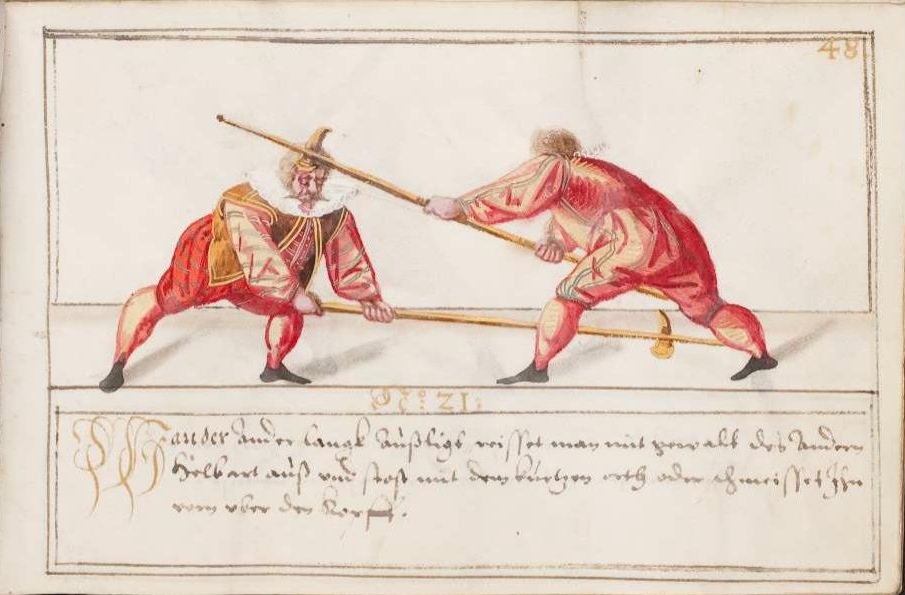 48
No: 21:
Wan der ander langk außligt reisset man mit gewalt des andern
helbart auß vnd stost mit dem kurtzen orth oder schmeisset Ihn
vorn vber den Kopff.